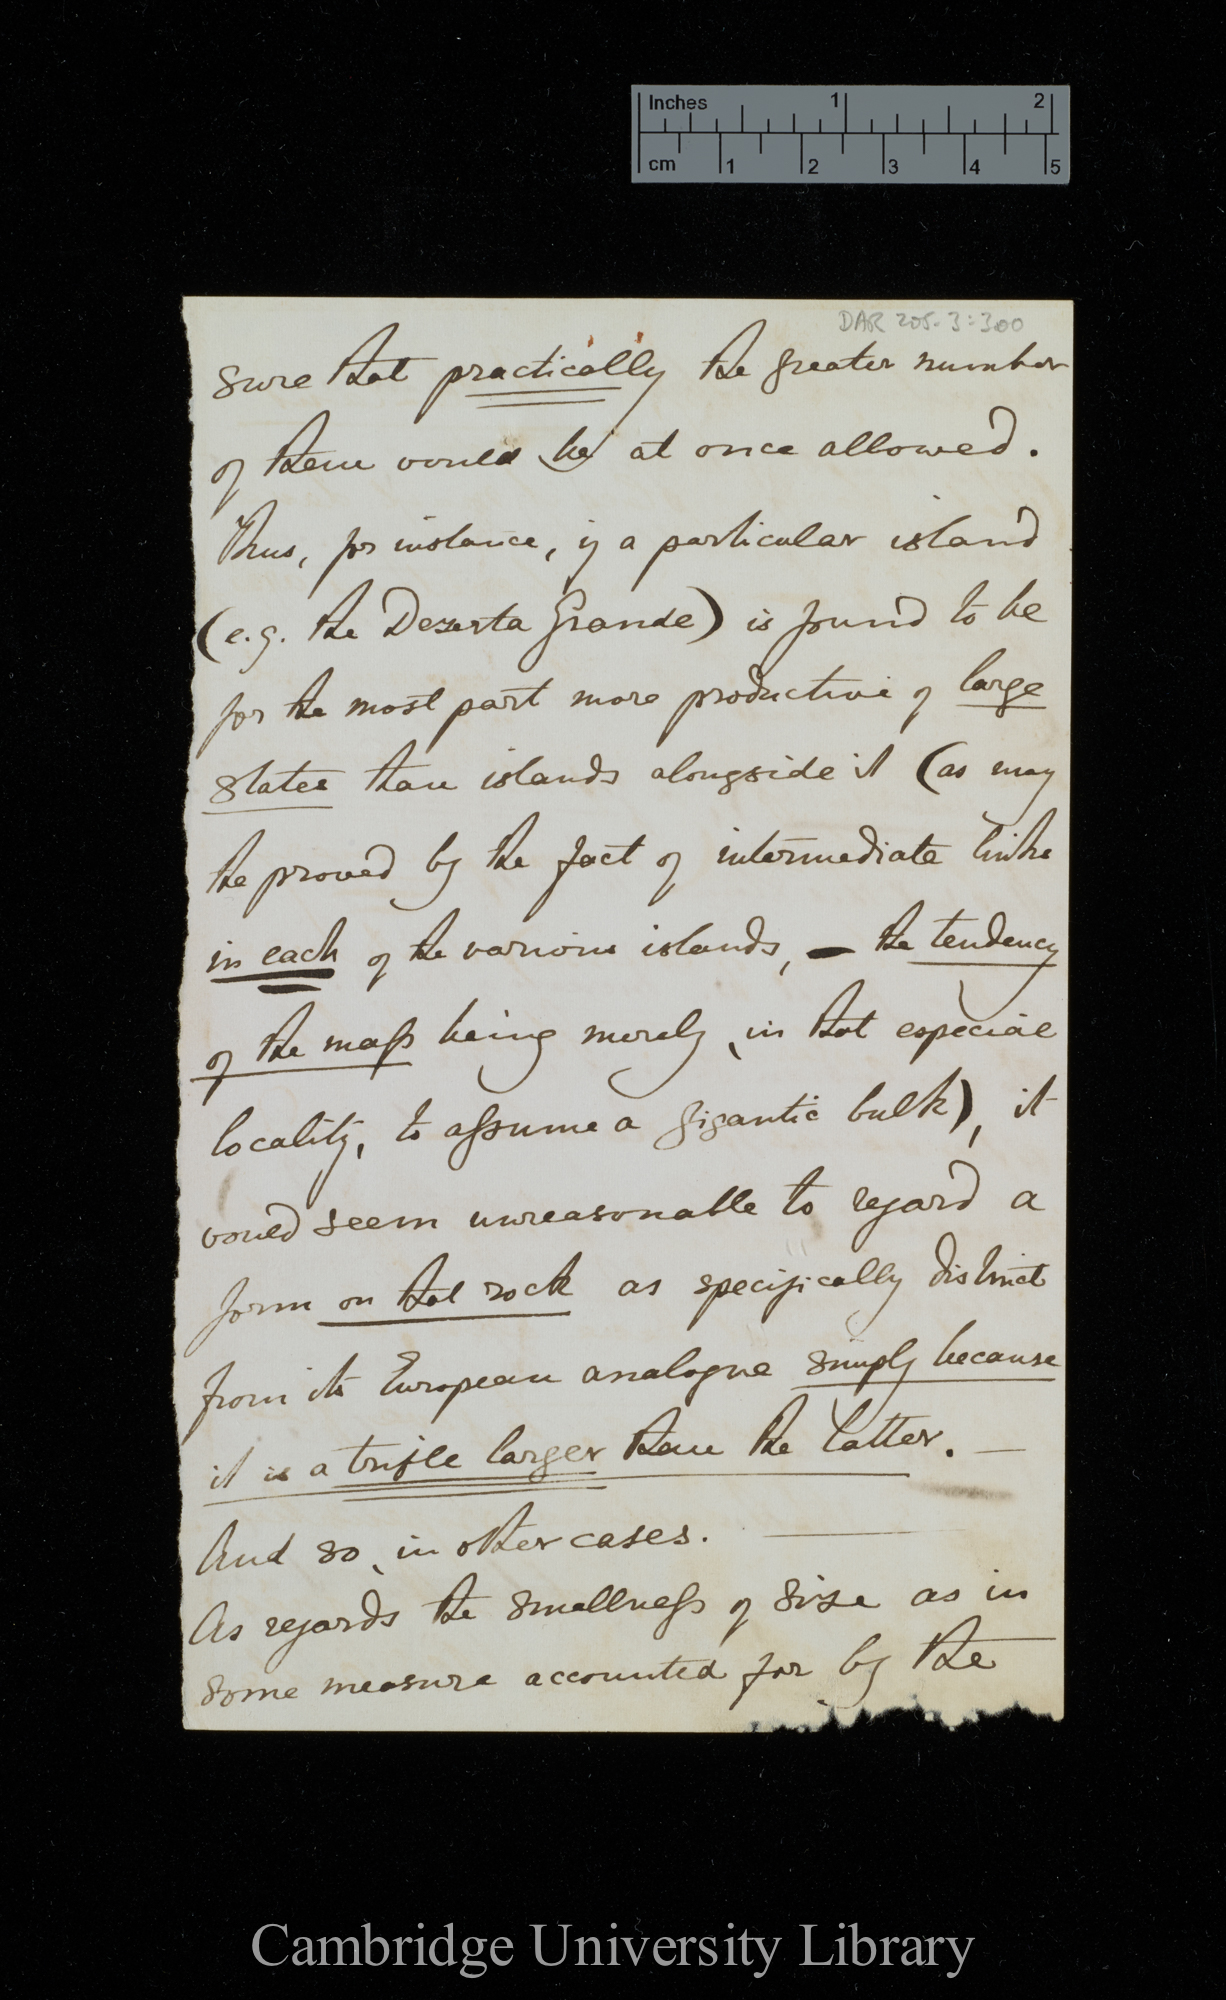 Inches 1 2
cm 1 2 3 4 5
DAR 205.3:300
sure that practically the greater number
of them would be at once allowed.
Thus, for instance, if a particular island
(e.g. the Dezerta Grande) is found to be
for the most part more productive of large
states than islands alongside it (as may
be proved by the fact of intermediate links
in each of the various islands, – the tendency
of the mass being merely, in that especial
locality, to assume a gigantic bulk), it
would seem unreasonable to regard a
form on that rock as specifically distinct
from its European analogue simply because
it is a trifle larger than the latter. —
And so, in other cases. —
As regards the smallness of size as in
some measure accounted for by the
Cambridge University Library